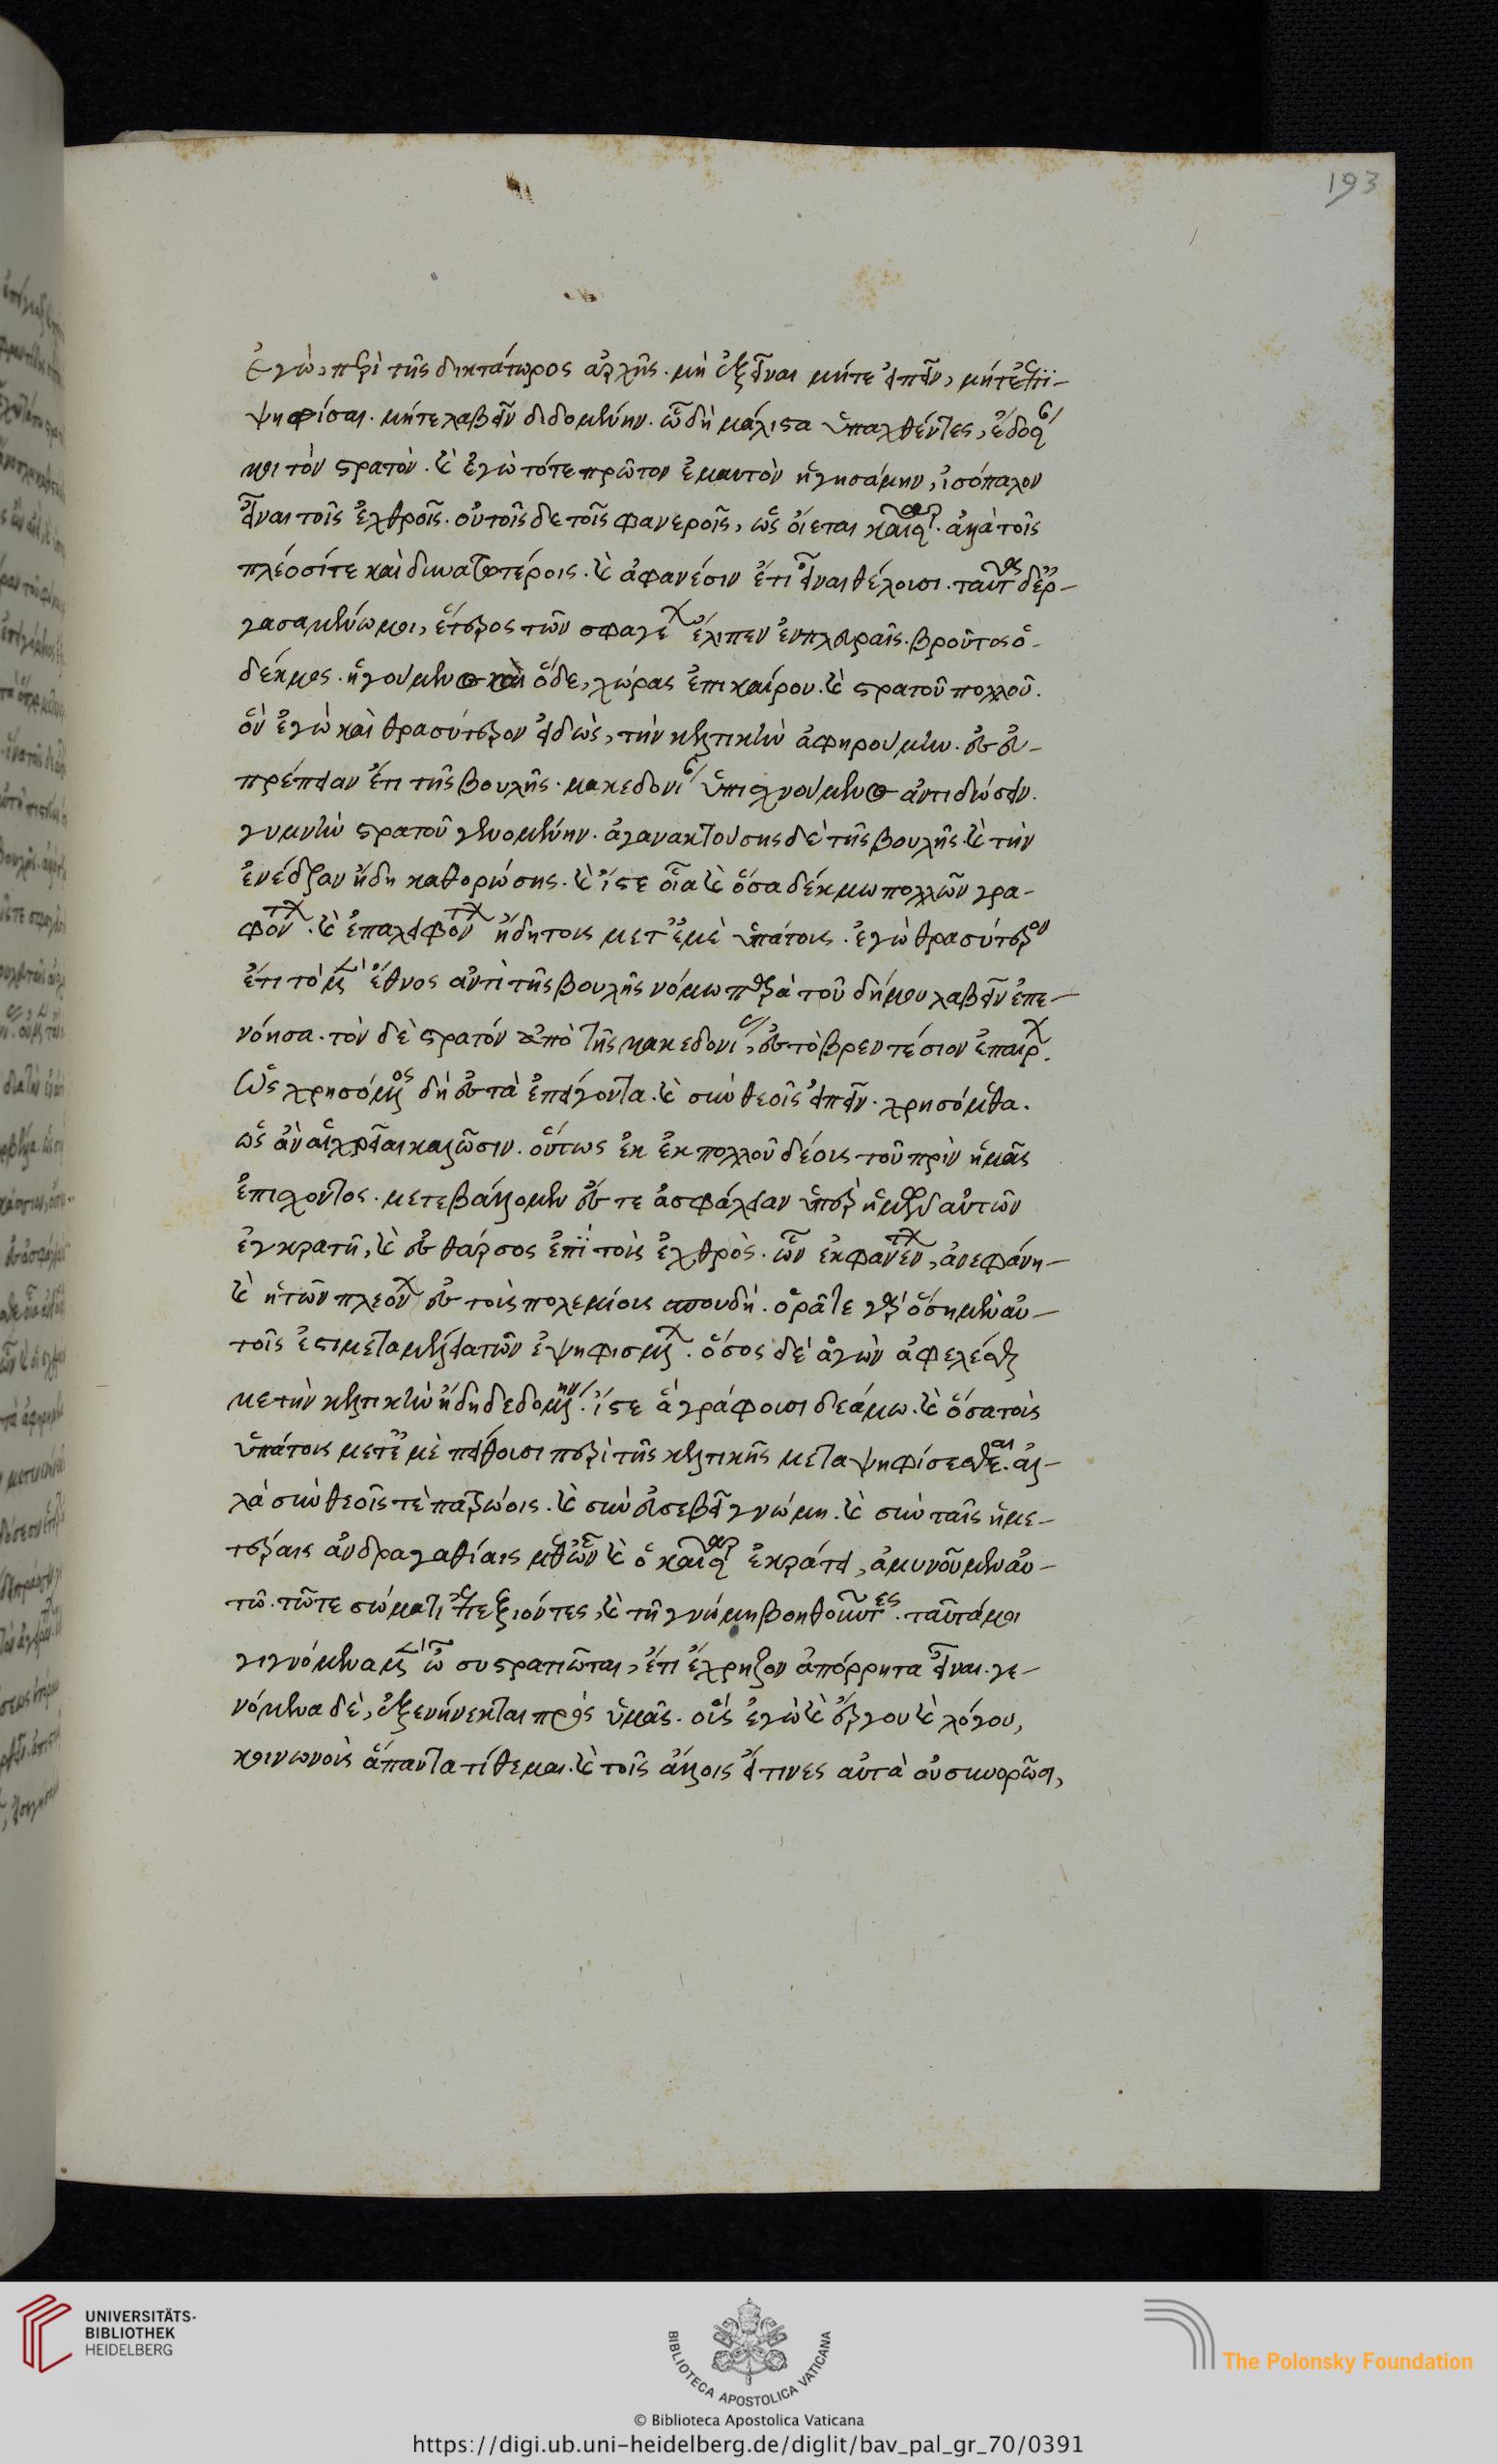 193
ἐγὼ, περὶ τῆς δικτάτωρος ἀρχῆς. μὴ ἐξεῖναι μήτε εἰπεῖν, μήτε ἐπι-
ψηφίσαι. μήτε λαβεῖν διδομένην. ᾧ δὴ μάλιστα ὑπαχθέντες, ἔδοσάν
μοι τὸν στρατὸν. καὶ ἐγὼ τότε πρῶτον ἐμαυτὸν ἡγησάμην, ἰσόπαλον
εἶναι τοῖς ἐχθροῖς. οὐ τοῖς δὲ τοῖς φανεροῖς, ὡς οἴεται καῖσαρ. ἀλλὰ τοῖς
πλέοσί τε καὶ δυνατωτέροις. καὶ ἀφανέσιν ἔτι εἶναι θέλουσι. ταῦτα δ' ἐρ-
γασαμένω μοι, ἕτερος τῶν σφαγέων ἔλιπεν ἐν πλευραῖς. βροῦτος ὁ
δέκμος. ἡγούμενος καὶ ὅδε, χώρας ἐπικαίρου. καὶ στρατοῦ πολλοῦ.
ὃν ἐγὼ καὶ θρασύτερον εἰδὼς, τὴν κελτικὴν ἀφηρούμην. ἐς εὐ-
πρέπειαν ἔτι τῆς βουλῆς. μακεδονίαν ὑπισχνούμενος ἀντιδώσειν.
γυμνὴν στρατοῦ γενομένην. ἀγανακτούσης δὲ τῆς βουλῆς. καὶ τὴν
ἐνέδραν ἤδη καθορώσης. καὶ ἴστε οἷα καὶ ὅσα δέκμω πολλῶν γρα-
φόντων. καὶ ἐπαλειφόντων ἤδη τοὺς μετ' ἐμὲ ὑπάτους. ἐγὼ θρασύτερον
ἔτι τὸ μὲν ἔθνος ἀντὶ τῆς βουλῆς νόμω παρὰ τοῦ δήμου λαβεῖν ἐπε-
νόησα. τὸν δὲ στρατόν ἀπὸ τῆς μακεδονίας, ἐς τὸ βρεντέσιον ἐπέραιουν.
ὡς χρησόμενος δὴ ἐς τὰ ἐπείγοντα. καὶ σὺν θεοῖς εἰπεῖν. χρησόμεθα.
ὡς ἂν αἱ χρεῖαι καλῶσιν. οὕτως ἐκ πολλοῦ δέους τοῦ πρὶν ἡμᾶς
ἐπισχόντος. μετεβάλλομεν ἔς τε ἀσφάλειαν ὑπὲρ ἡμῶν αὐτῶν
ἐγκρατῆ, καὶ ἐς θάρσος ἐπὶ τοῖς ἐχθροῖς. ὧν ἐκφανέντων, ἀνεφάνη
καὶ ἡ τῶν πλεόνων ἐς τοὺς πολεμίους σπουδή. ὁρᾶτε γὰρ ὅση μὲν αὐ-
τοῖς ἐστι μεταμέλεια τῶν ἐψηφισμένων. ὅσος δὲ ἀγὼν ἀφελέσθαι
με τὴν κελτικὴν ἤδη δεδομένην. ἴστε ἃ γράφουσι δέκμω. καὶ ὅσα τοὺς
ὑπάτους μετ' ἐμὲ πείθουσι περὶ τῆς κελτικῆς μεταψηφίσεσθαι. ἀλ-
λὰ σὺν θεοῖς τε πατρώοις. καὶ σὺν εὐσεβεῖ γνώμη. καὶ σὺν ταῖς ἡμε-
τέραις ἀνδραγαθίαις μεθ' ὧν καὶ ὁ καῖσαρ ἐκράτει, ἀμυνοῦμεν αὐ-
τῶ. τῶ τε σώματι ἐπεξιόντες, καὶ τῆ γνώμη βοηθοῦντες. ταῦτά μοι
γιγνόμενα μὲν ὦ συστρατιῶται, ἔτι ἔχρηζον ἀπόρρητα εἶναι. γε-
νόμενα δὲ, ἐξενήνεκται πρὸς ὑμᾶς. οὓς ἐγὼ καὶ ἔργου καὶ λόγου,
κοινωνοὺς ἅπαντα τίθεμαι. καὶ τοῖς ἄλλοις εἴ τινες αὐτὰ οὐ συνορῶσι,
UNIVERSITÄTS-
BIBLIOTHEK
HEIDELBERG
BIBLIOTECA APOSTOLICA VATICANA
The Polonsky Foundation
© Biblioteca Apostolica Vaticana
https://digi.ub.uni-heidelberg.de/diglit/bav_pal_gr_70/0391